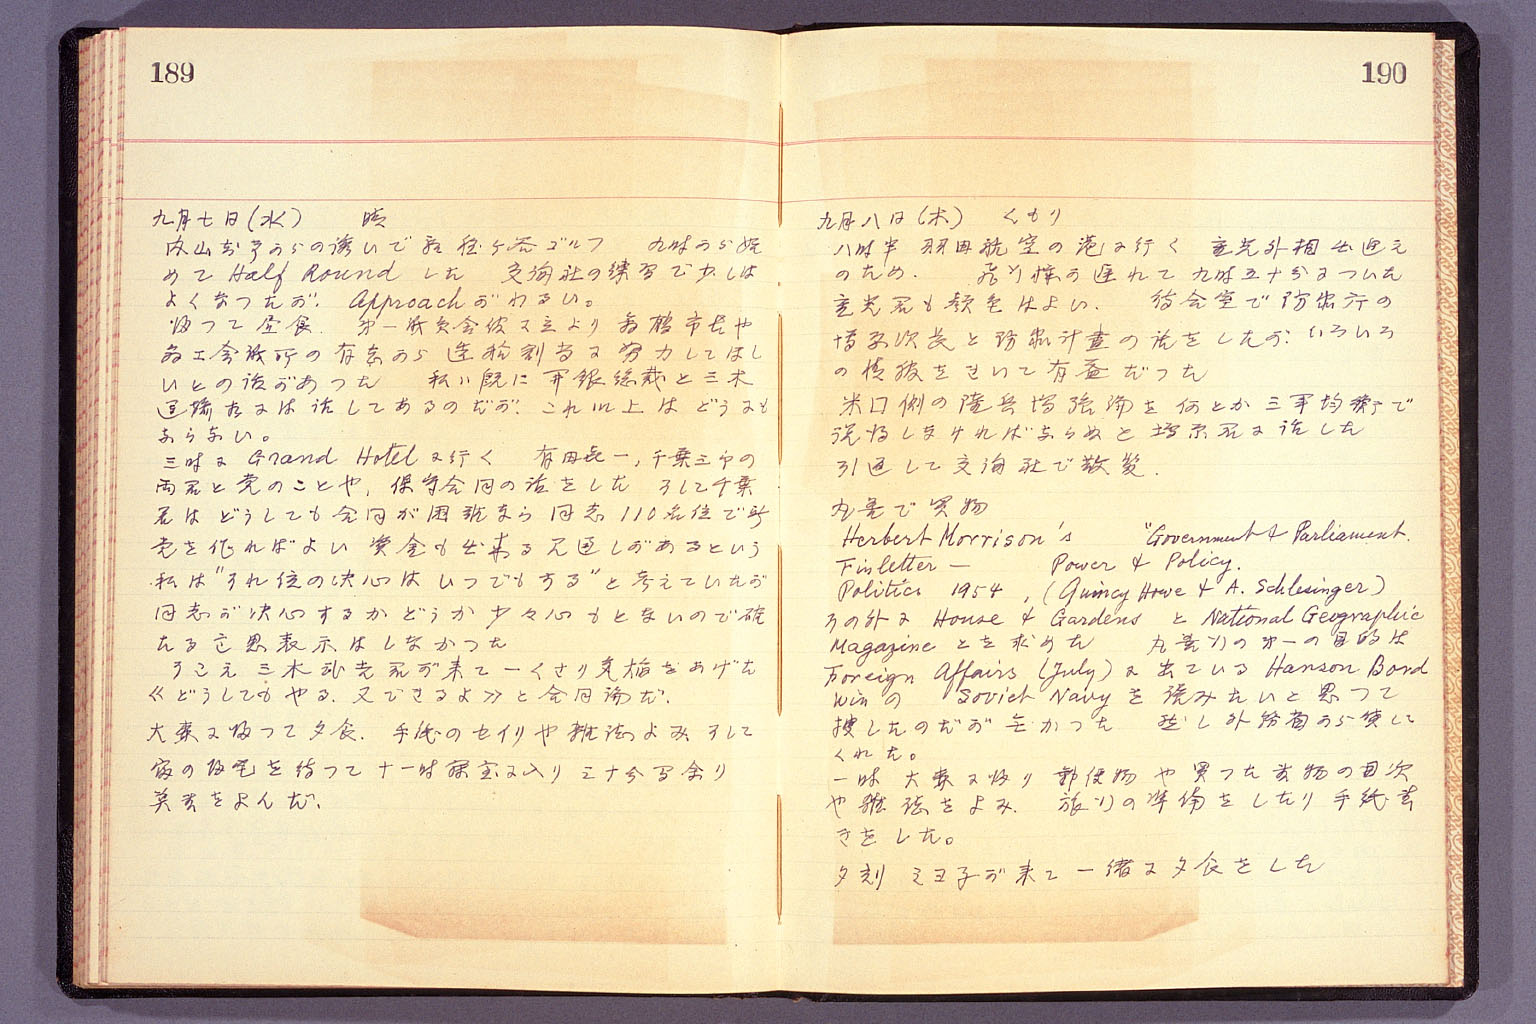 189
九月七日(水) 晴
内山岩事からの誘いで程ヶ谷ゴルフ 九時から始
めて Half Round した 交詢社の練習で少しは
よくなつたが、Approach がわるい。
帰つて昼食 第一 に立より 市長や
商工会議所の有志から造船割当に努力してほし
いとの話があつた 私は既に開銀総裁と三木
運輸相には話してあるのだが、これ以上はどうにも
ならない。
三時に Grand Hotel に行く 有田㐂一、千葉三郎の
両君と党のことや、保守合同の話をした そして千葉
君はどうしても合同が困難なら同志110名位で新
党を作ればよい 資金も出来る見通しがあるという
私は"それ位の決心はいつでもする"と考えていたが
同志が決心するかどうか少々心もとないので確
たる意思表示はしなかつた
そこえ三木武吉君が来て一くさり気焔をあげた
≪どうしてもやる、又できるよ≫と合同論だ、
大東に帰つて夕食、手紙のセイリや雑誌よみ そして
の帰宅を待つて十一時寝室に入り三十分写余り
英書をよんだ、
190
九月八日(木) くもり
八時半 羽田航空の港に行く 重光外相出迎え
のため、 飛行機が遅れて九時五十分についた
重光君も顔色はよい、 待合室で防衛庁の
増原次長と防衛計画の話をしたが、いろいろ
の情報をきいて有益だつた
米口側の陸兵増強論を何とか三軍均衡で
説得しなければならぬと増原君に話した
引返して交詢社で散髪、
丸善で買物
Herbert Morrison's "Government & Parliament.
Finletter — Power & Policy.
Politics 1954, (Quincy Howe & A. Schlesinger)
その外に House & Gardens と National Geographic
Magazine とを求めた 丸善行の第一の目的は
Foreign Affairs (July) に出ている Hanson Bond
win の Soviet Navy を読みたいと思つて
捜したのだが無かつた 然し外務省から貸して
くれた。
一時 大東に帰り 郵便物や買つた書物の目次
や雑誌をよみ、 旅行の準備をしたり手紙書
きをした。
夕刻 ミヨ子が来て一緒に夕食をした